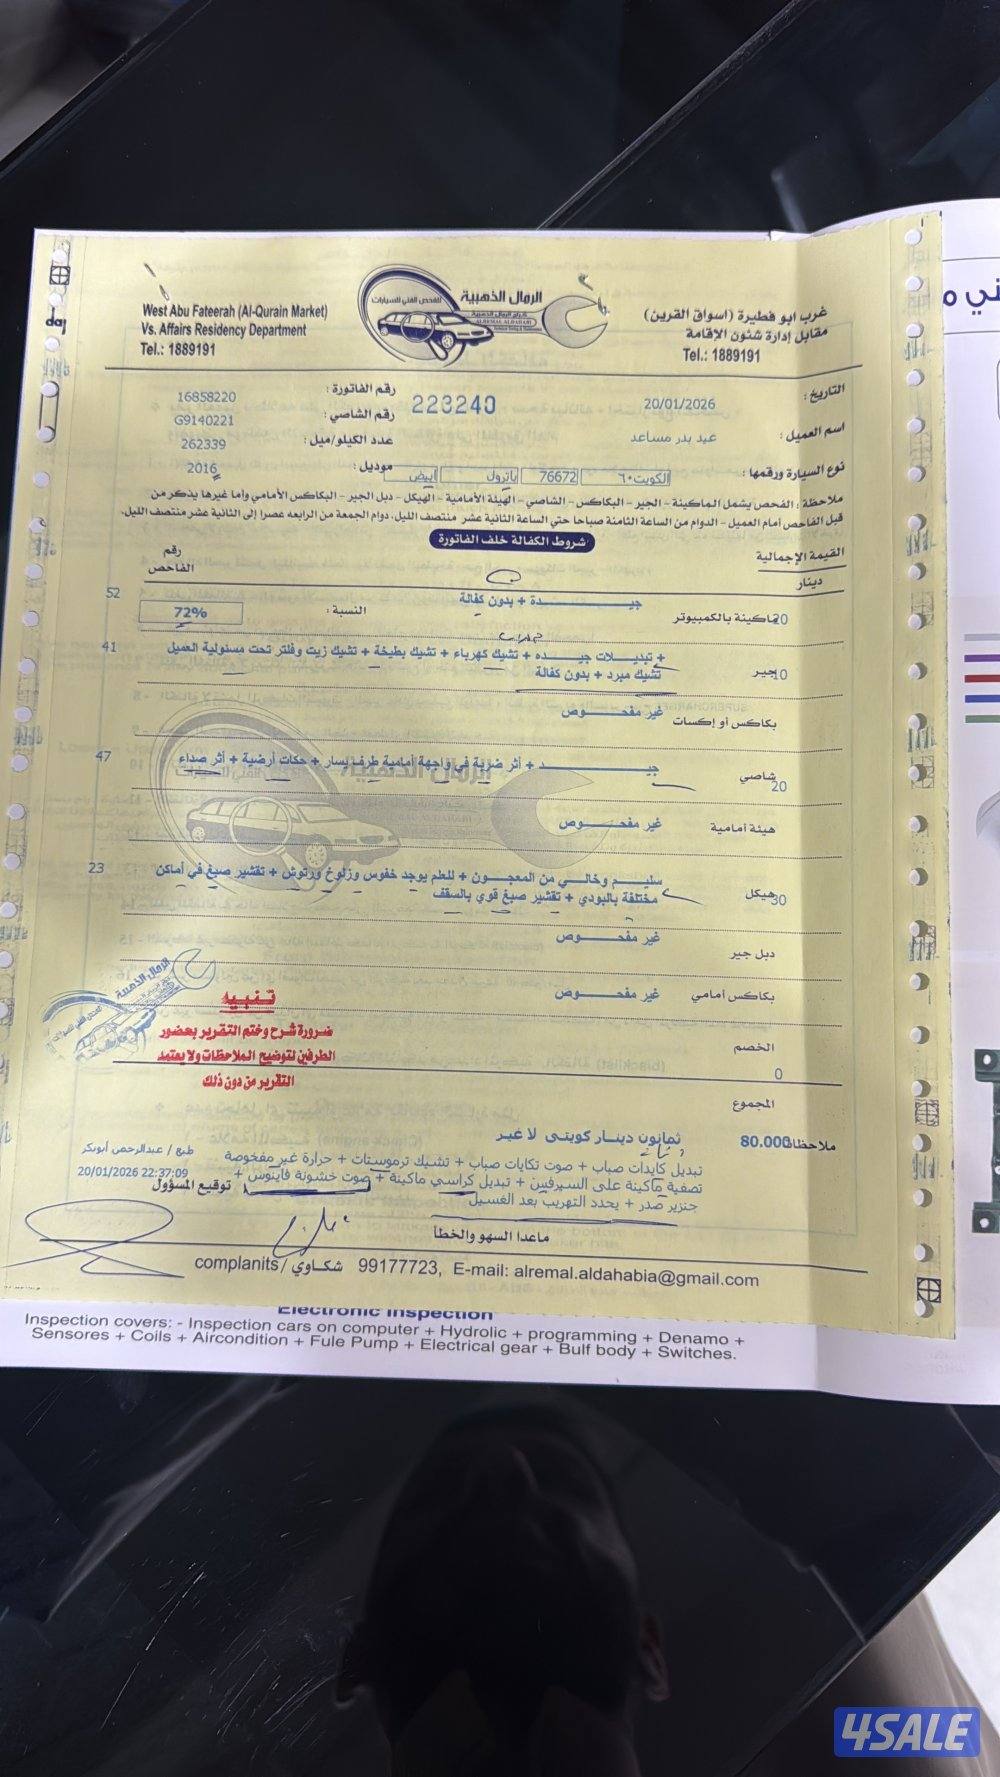 West Abu Fateerah (Al-Qurain Market)
Vs. Affairs Residency Department
Tel.: 1889191
الرمال الذهبية
للفحص الفني للسيارات
كراج الرمال الذهبية
ALREMAL ALDAHABI
غرب ابو فطيرة (اسواق القرين)
مقابل إدارة شئون الإقامة
Tel.: 1889191
التاريخ : 20/01/2026
223240
رقم الفاتورة : 16858220
اسم العميل : عيد بدر مساعد
رقم الشاصي : G9140221
عدد الكيلو/ميل : 262339
نوع السيارة ورقمها : الكويت٦٠ 76672 باترول ابيض
موديل : 2016
ملاحظة : الفحص يشمل الماكينة - الجير - البكاكس - الشاصي - الهيئة الأمامية - الهيكل - دبل الجير - البكاكس الأمامي وأما غيرها يذكر من
قبل الفاحص أمام العميل - الدوام من الساعة الثامنة صباحا حتي الساعة الثانية عشر منتصف الليل، دوام الجمعة من الرابعه عصرا إلى الثانية عشر منتصف الليل.
شروط الكفالة خلف الفاتورة
القيمة الإجمالية
دينار
رقم
الفاحص
ماكينة بالكمبيوتر 20 جيـــدة + بدون كفالة 52
النسبة : 72%
جير 10 + تبديـلات جيـده + تشيك كهرباء + تشيك بطيخة + تشيك زيت وفلتر تحت مسئولية العميل 41
تشيك مبرد + بدون كفالة
بكاكس أو إكسات غير مفحـوص
شاصي 20 جيـــد + أثر ضربة في واجهة أمامية طرف يسار + حكات أرضية + أثر صداء 47
هيئة أمامية غير مفحـوص
هيكل 30 سليـم وخالي من المعجـون + للعلم يوجد خفوس وزلوخ ورتوش + تقشير صبغ في أماكن 23
مختلفة بالبودي + تقشير صبغ قوي بالسقف
دبل جير غير مفحـوص
بكاكس أمامي غير مفحـوص
الخصم
0
تنبيه
ضرورة شرح وختم التقرير بحضور
الطرفين لتوضيح الملاحظات ولا يعتمد
التقرير من دون ذلك
الرمال الذهبية
المجموع
80.000 ثمانون دينار كويتى لا غير
ملاحظات
تبديل كايدات صباب + صوت تكايات صباب + تشيك ترموستات + حرارة غير مفحوصة
تصفية ماكينة على السيرفيس + تبديل كراسي ماكينة + صوت خشونة فاينوس +
جنزير صدر + يحدد التهريب بعد الغسيل
طبع / عبدالرحمن أبوبكر
20/01/2026 22:37:09
توقيع المسؤول
ماعدا السهو والخطأ
complanits / شكاوي 99177723, E-mail: alremal.aldahabia@gmail.com
Electronic Inspection
Inspection covers: - Inspection cars on computer + Hydrolic + programming + Denamo +
Sensores + Coils + Aircondition + Fule Pump + Electrical gear + Bulf body + Switches.
4SALE